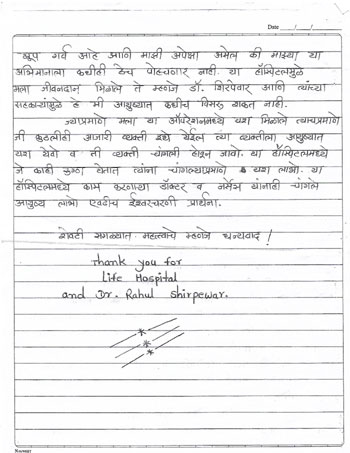 Date ___/___/___
खूप गर्व आहे आणि माझी अपेक्षा असेल की माझ्या या
अभिमानाला कधीही ठेच पोहचणार नाही. या हॉस्पिटलमुळे
मला जीवनदान मिळाले ते म्हणजे डॉ. शिरपेवार आणि त्यांच्या
सहकाऱ्यांमुळे हे मी आयुष्यात कधीच विसरू शकत नाही.
ज्याप्रमाणे मला या ऑपरेशनमध्ये यश मिळाले त्याचप्रमाणे
जी कुठलीही आजारी व्यक्ती इथे येईल त्या व्यक्तीला आयुष्यात
यश येवो व ती व्यक्ती चांगली होवून जावो. या हॉस्पिटलमध्ये
जे काही रुग्ण येतात त्यांना चांगल्याप्रमाणे यश लाभो. या
हॉस्पिटलमध्ये काम करणाऱ्या डॉक्टर व नर्सेस यांनाही चांगले
आयुष्य लाभो एवढीच ईश्वरचरणी प्रार्थना.
शेवटी सगळ्यात महत्वाचे म्हणजे धन्यवाद !
Thank you for
Life Hospital
and Dr. Rahul Shirpewar.